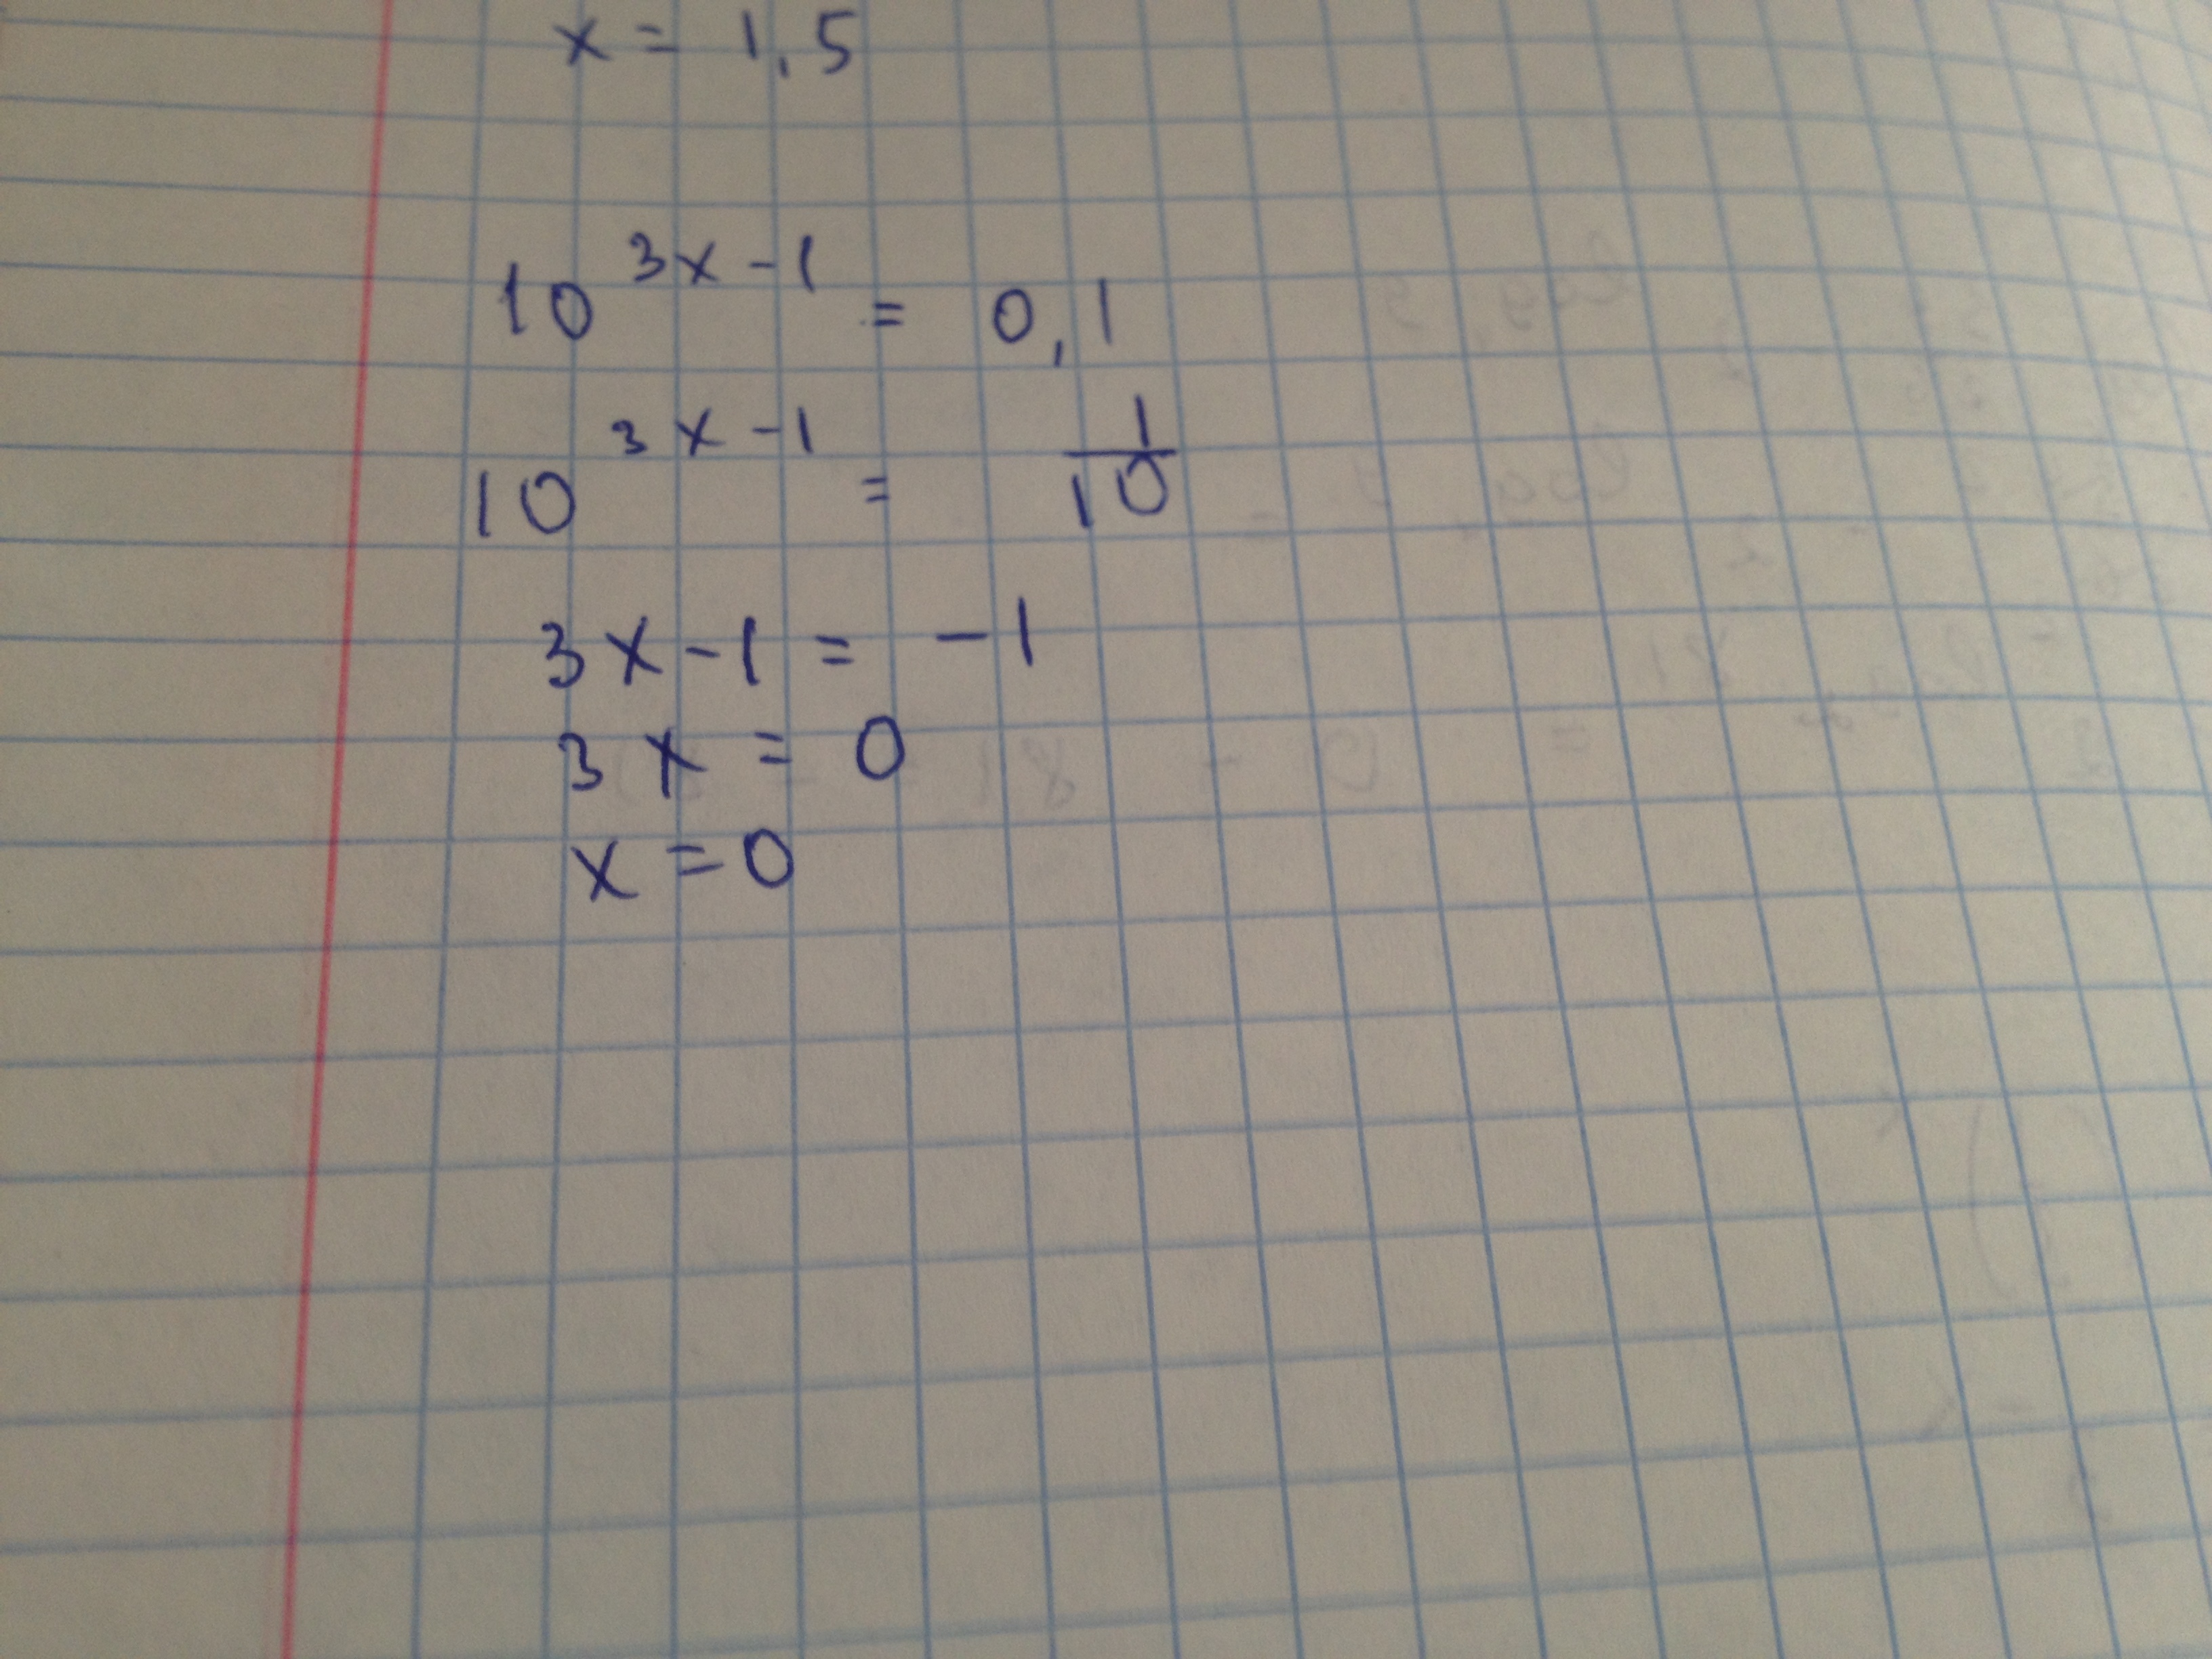 x = 1,5
10^{3x-1} = 0,1
10^{3x-1} = \frac{1}{10}
3x-1 = -1
3x = 0
x = 0